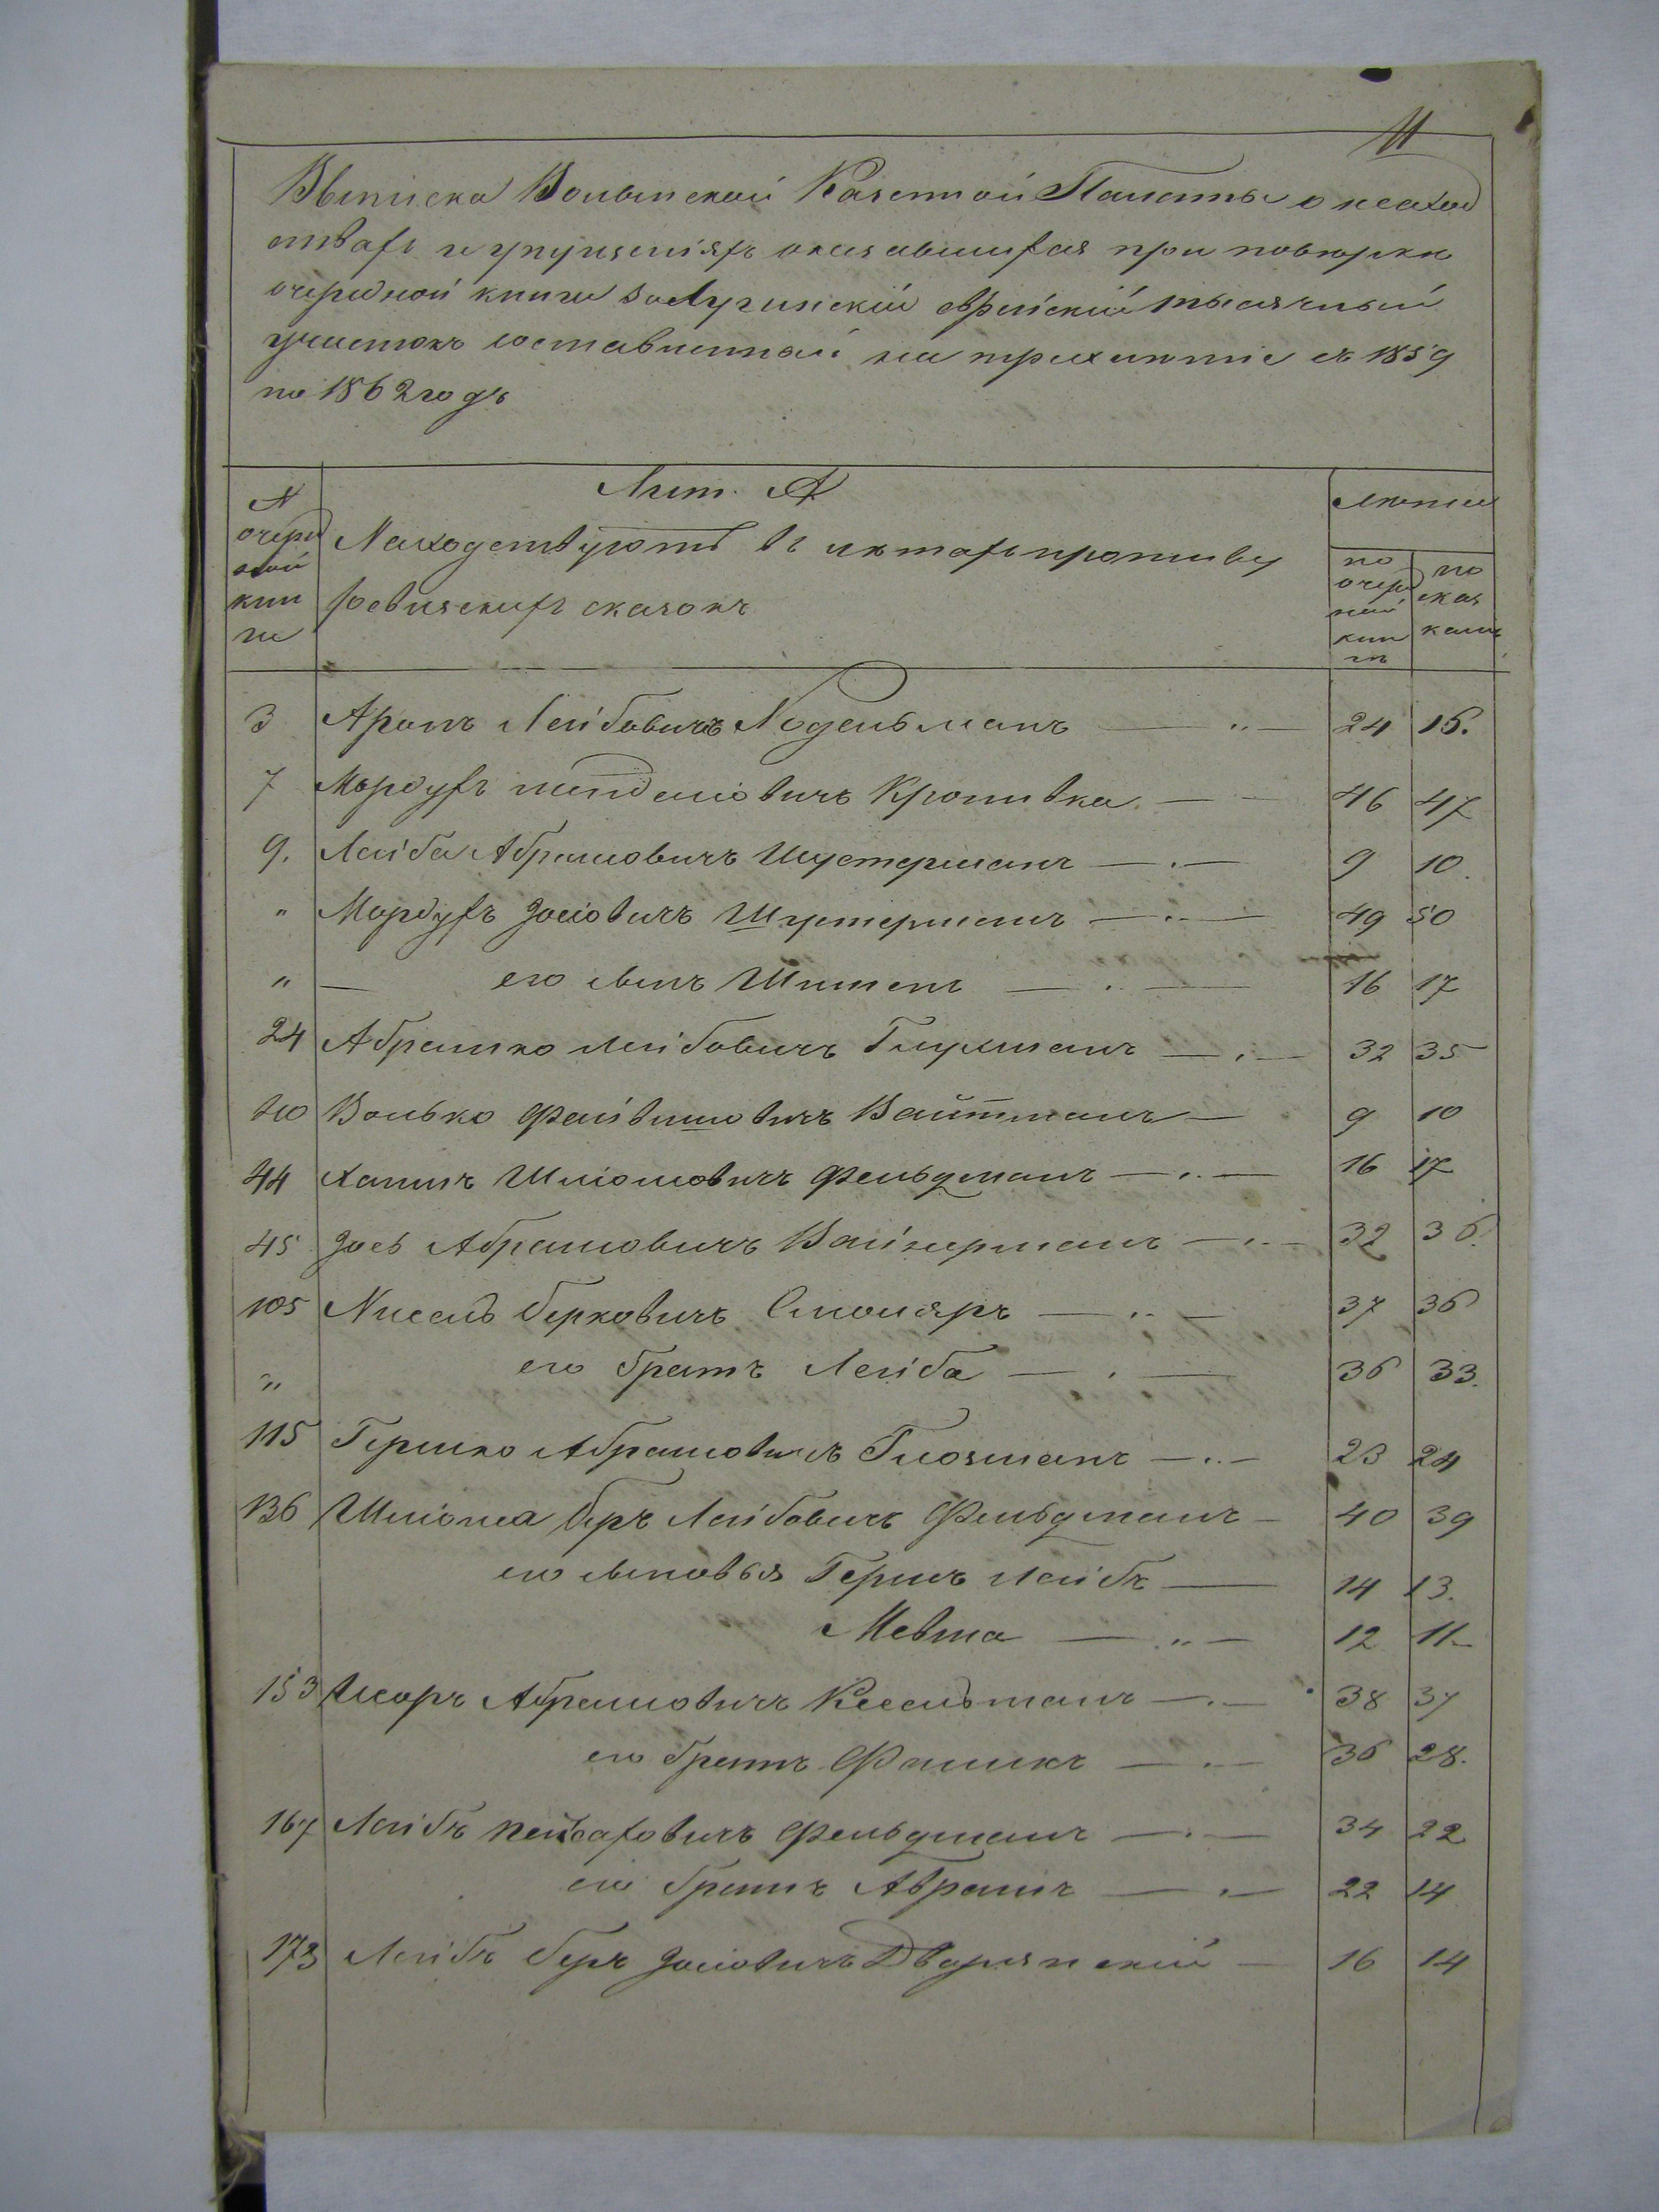 11
Выписка Волынской Казенной Палаты о несход
ствахъ и упущеніяхъ оказавшихся при поверки
очередной книги Еврейскій тысячный
участокъ составленной на трехлѣтіе съ 1859
по 1862 годъ
№ очеред ной кни ги
Лит. А
Несходствуютъ въ лѣтахъ противу
ревизскихъ сказокъ
лѣтъ
по очеред ной кни гѣ
по сказ камъ
3 Аронъ Лейбовичъ Нодельманъ — „ — 24 15.
7 Мордухъ Кропивка — — 46 47
9. Лейба Абрамовичъ Шустерманъ — . — 9 10.
„ Мордухъ Іосіовичъ Шустерманъ — . — 49 50
„ — его сынъ — . — 16 17
24 Абрашко Лейбовичъ Глухманъ — . — 32 35
Волько Файвишовичъ Вайтманъ — 9 10
44 Хаимъ Шліомовичъ Фельдманъ — . — 16 17
45 Іось Абрамовичъ Вайнерманъ — „ — 32 36.
105 Нисель Берковичъ Столяръ — „ — 37 36
„ его братъ Лейба — . — 36 33.
115 Гершко Абрамовичъ Глозманъ — „ — 23 24
136 Шліома Беръ Лейбовичъ Фельдманъ — 40 39
его сыновья Гершъ Лейбъ — 14 13.
Мевша — „ — 12 11
153 Абрамовичъ Кесельманъ — . — 38 37
его братъ — . — 36 28.
167 Лейбъ Пейсаховичъ Фельдманъ — . — 34 22
его братъ Абрамъ — . — 22 14
173 Лейбъ Беръ Іосіовичъ Дворянскій — 16 14